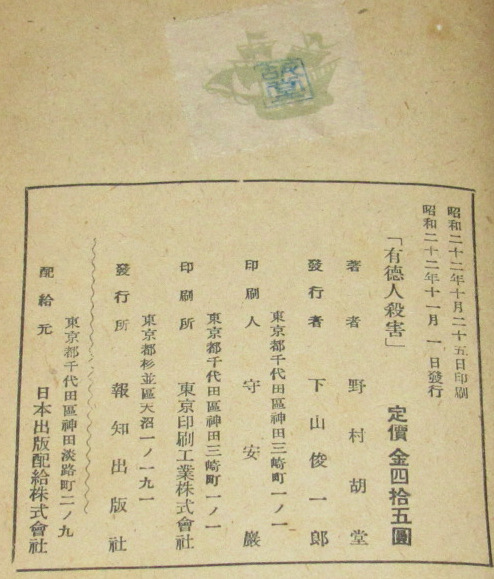 昭和二十二年十月二十五日印刷
昭和二十二年十一月一日發行
「有德人殺害」 定價金四拾五圓
著者 野村胡堂
發行者 下山俊一郎
東京都千代田區神田三崎町一ノ一
印刷人 守安巖
東京都千代田區神田三崎町一ノ一
印刷所 東京印刷工業株式會社
東京都杉並區天沼一ノ一九一
發行所 報知出版社
東京都千代田區神田淡路町二ノ九
配給元 日本出版配給株式會社